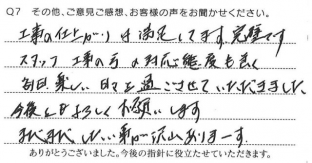 Q7 その他、ご意見ご感想、お客様の声をお聞かせください。
工事の仕上がりは満足してます。完璧です
スタッフ 工事の方の対応態度も良く
毎日楽しい日々を過ごさせていただきました
今後ともよろしくお願いします
まだまだしたい事が沢山ありまーす
ありがとうございました。今後の指針に役立たせていただきます。